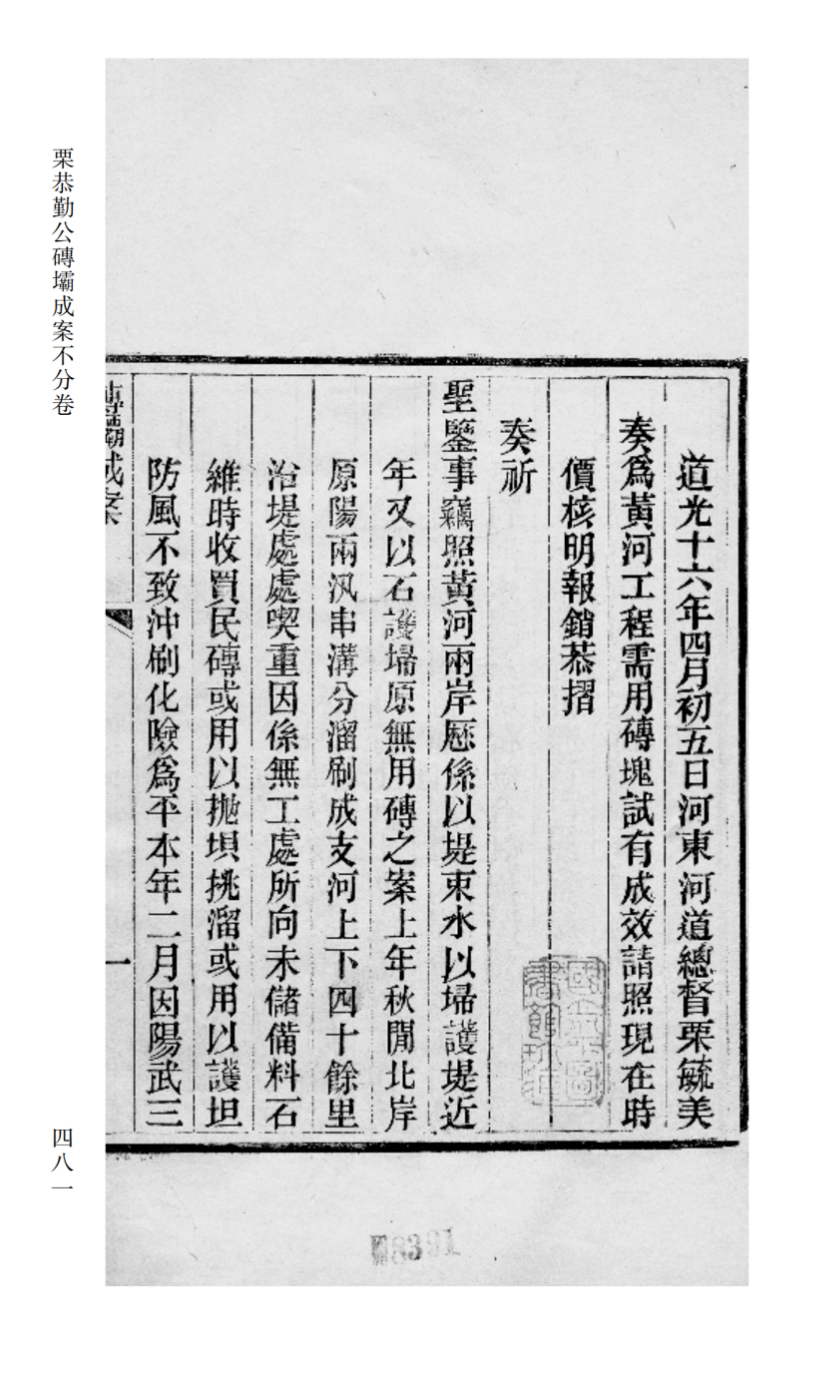 道光十六年四月初五日河東河道總督栗毓美
奏為黃河工程需用磚塊試有成效請照現在時
價核明報銷恭摺
奏祈
聖鑒事竊照黃河兩岸厯係以堤束水以埽護堤近
年又以石護埽原無用磚之案上年秋閒北岸
原陽兩汛串溝分溜刷成支河上下四十餘里
沿堤處處喫重因係無工處所向未儲備料石
維時收買民磚或用以抛垻挑溜或用以護坦
防風不致沖刷化險為平本年二月因陽武三
磚壩成案
一
栗恭勤公磚壩成案不分卷
四八一